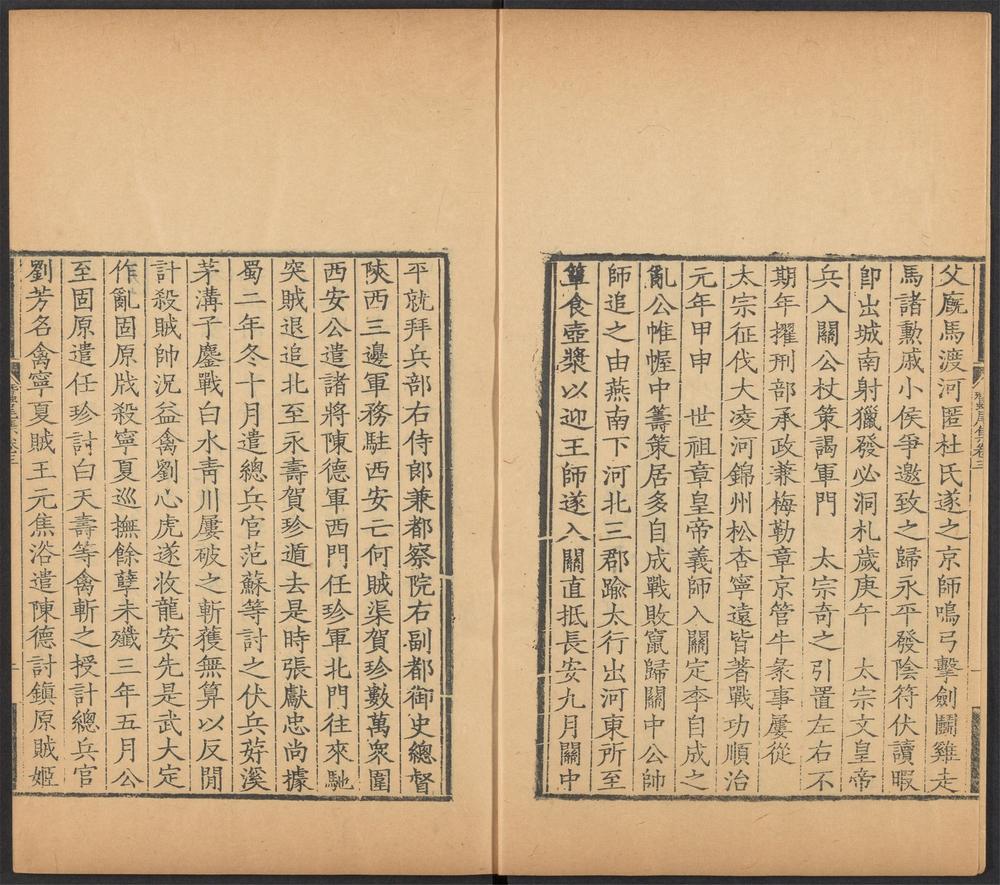 父廐馬渡河匿杜氏遂之京師鳴弓擊劍鬭雞走
馬諸勲戚小侯爭邀致之歸永平發陰符伏讀暇
卽出城南射獵發必洞札歲庚午　太宗文皇帝
兵入關公杖策謁軍門　太宗奇之引置左右不
期年擢刑部承政兼梅勒章京管牛彔事屢從
太宗征伐大凌河錦州松杏寧遠皆著戰功順治
元年甲申　世祖章皇帝義師入關定李自成之
亂公帷幄中籌策居多自成戰敗竄歸關中公帥
師追之由燕南下河北三郡踰太行出河東所至
簞食壺漿以迎王師遂入關直抵長安九月關中
平就拜兵部右侍郎兼都察院右副都御史總督
陝西三邊軍務駐西安亡何賊渠賀珍數萬衆圍
西安公遣諸將陳德軍西門任珍軍北門往來馳
突賊退追北至永壽賀珍遁去是時張獻忠尚據
蜀二年冬十月遣總兵官范蘇等討之伏兵葯溪
茅溝子鏖戰白水靑川屢破之斬獲無算以反閒
計殺賊帥況益禽劉心虎遂收龍安先是武大定
作亂固原戕殺寧夏巡撫餘孽未殲三年五月公
至固原遣任珍討白天壽等禽斬之授計總兵官
劉芳名禽寧夏賊王元焦浴遣陳德討鎮原賊姬